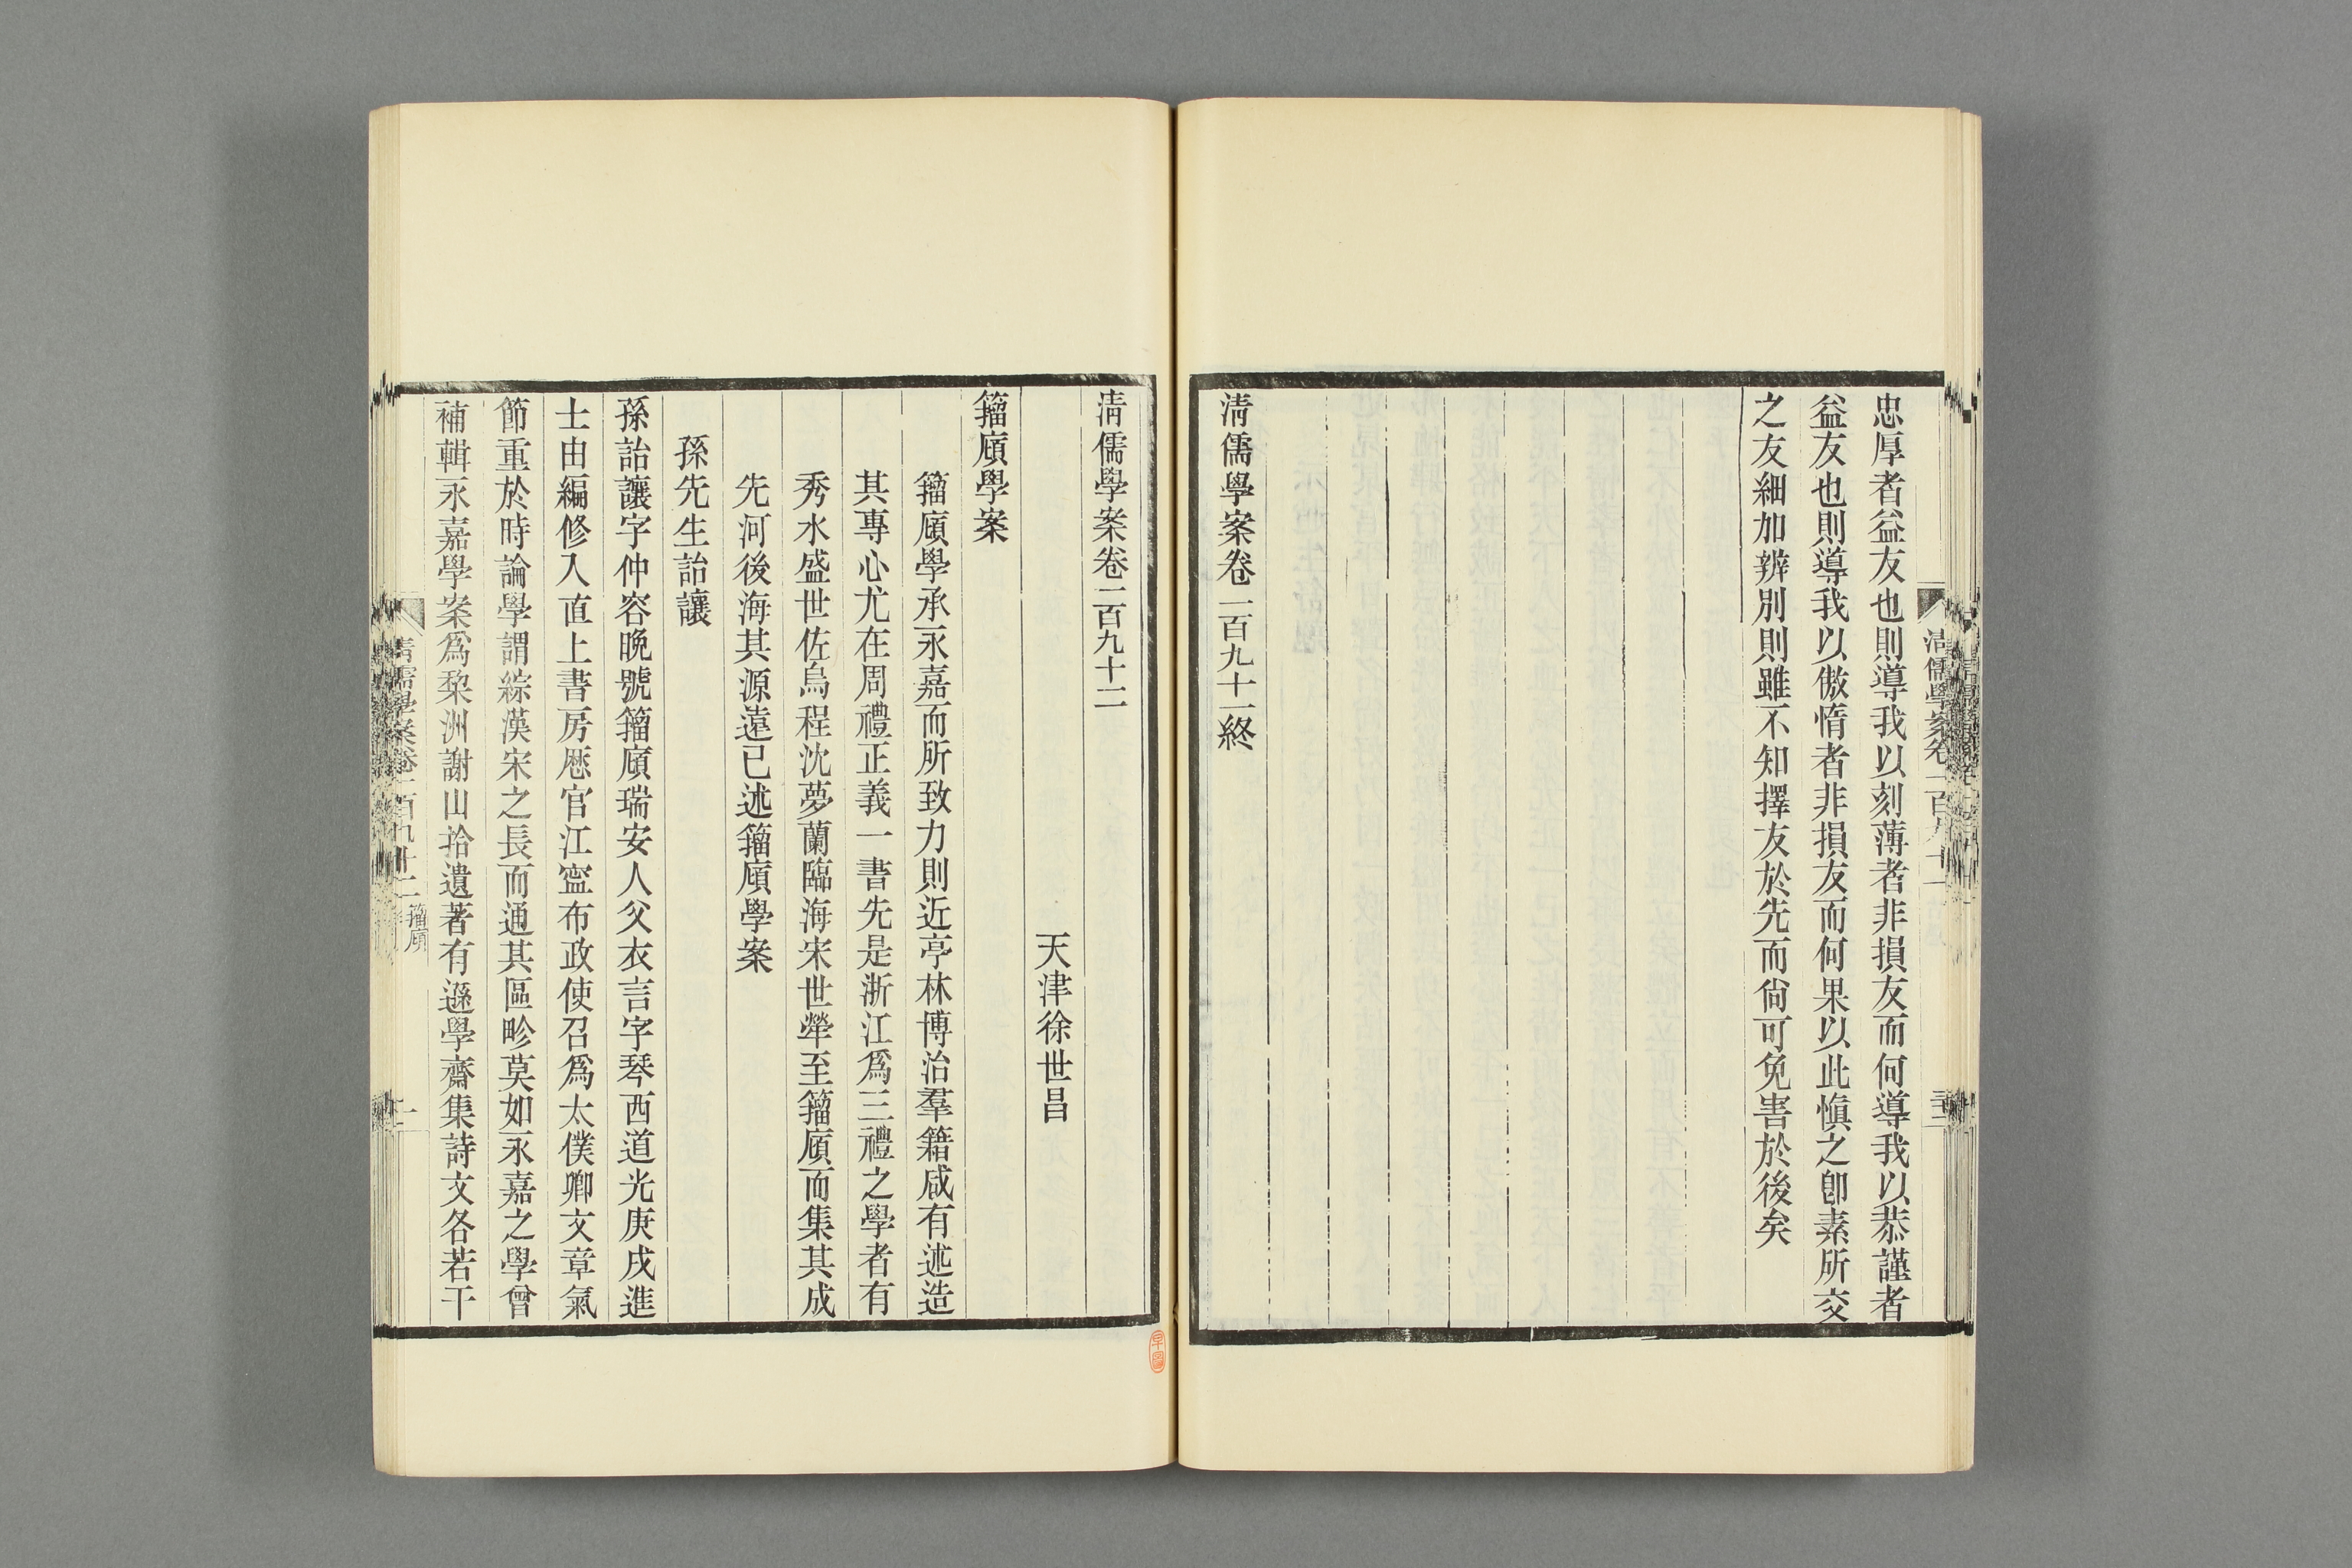 忠厚者益友也則導我以刻薄者非損友而何導我以恭謹者
益友也則導我以傲惰者非損友而何果以此愼之卽素所交
之友細加辨別則雖不知擇友於先而尙可免害於後矣
清儒學案卷一百九十一終
清儒學案卷一百九十二
天津徐世昌
籀廎學案
籀廎學承永嘉而所致力則近亭林博洽羣籍咸有述造
其專心尤在周禮正義一書先是浙江爲三禮之學者有
秀水盛世佐烏程沈夢蘭臨海宋世犖至籀廎而集其成
先河後海其源遠已述籀廎學案
孫先生詒讓
孫詒讓字仲容晚號籀廎瑞安人父衣言字琴西道光庚戌進
士由編修入直上書房歷官江寍布政使召爲太僕卿文章氣
節重於時論學謂綜漢宋之長而通其區畛莫如永嘉之學曾
補輯永嘉學案爲棃洲謝山拾遺著有遜學齋集詩文各若干
清儒學案卷一百九十二
籀廎
一